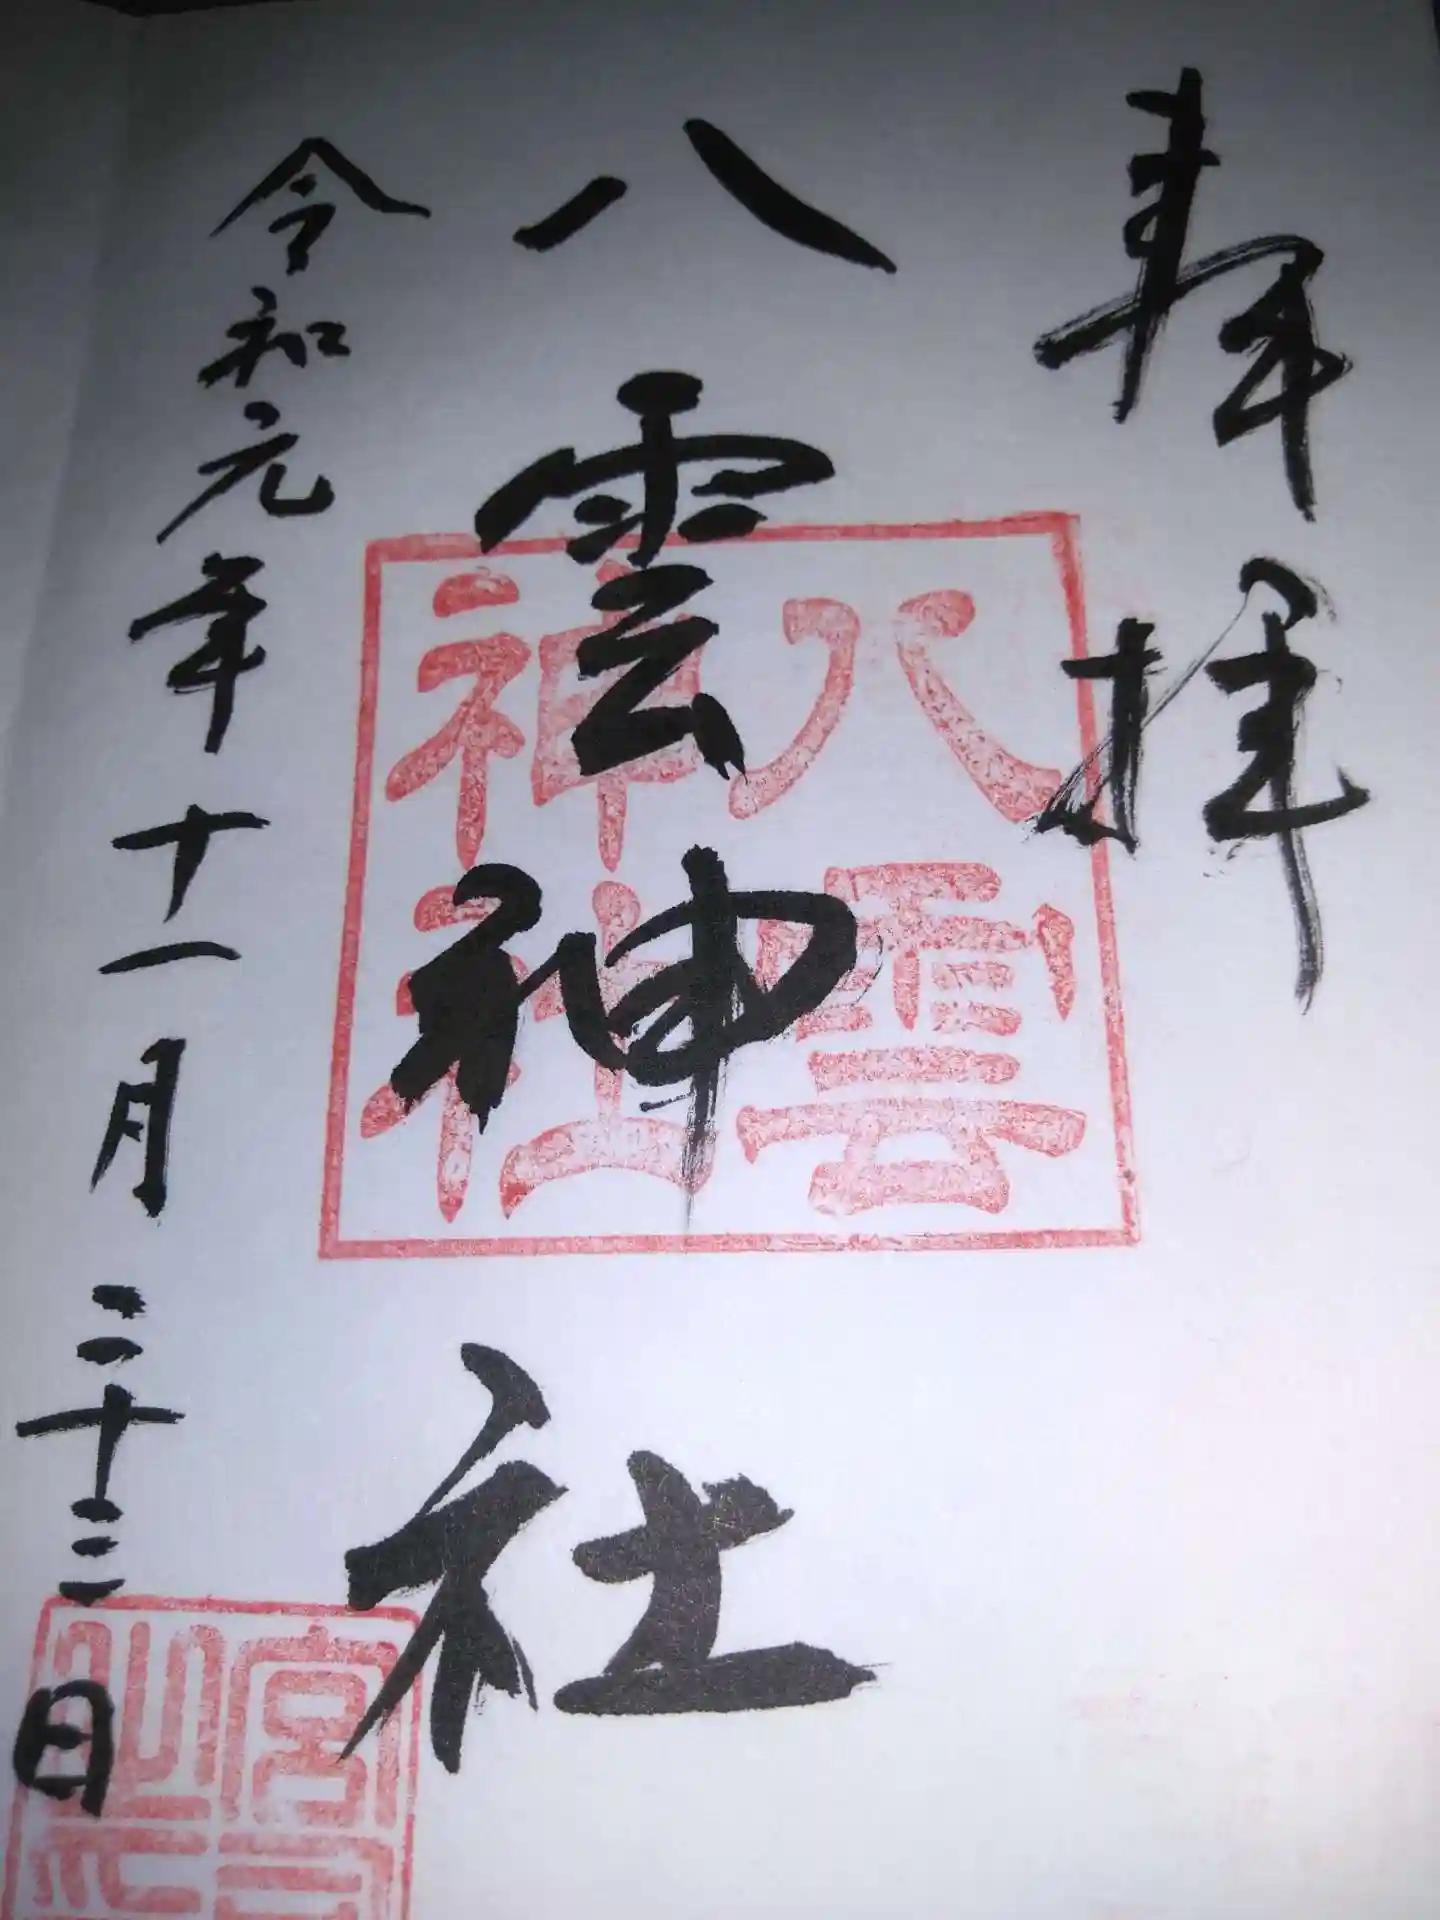 奉拝
八雲神社
令和元年十一月二十三日
八雲
神社
宮司
之印